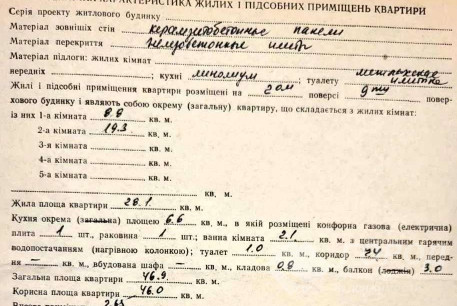 ХАРАКТЕРИСТИКА ЖИЛИХ І ПІДСОБНИХ ПРИМІЩЕНЬ КВАРТИРИ
Серія проекту житлового будинку
Матеріал зовнішніх стін керамзитобетонные панели
Матеріал перекриття железобетонные плиты
Матеріал підлоги: жилих кімнат
передніх ; кухні линолиум ; туалету метлахская плитка
Жилі і підсобні приміщення квартири розміщені на 2ом поверсі 9ти повер-
хового будинку і являють собою окрему (загальну) квартиру, що складається з жилих кімнат:
із них 1-а кімната 8.8 кв. м.
2-а кімната 19.3 кв. м.
3-я кімната кв. м.
4-а кімната кв. м.
5-а кімната кв. м.
кв. м.
Жила площа квартири 28.1 кв. м.
Кухня окрема (загальна) площею 6.6 кв. м., в якій розміщені конфорна газова (електрична)
плита 1 шт., раковина 1 шт.; ванна кімната 2.1 кв. м. з центральним гарячим
водопостачанням (нагрівною колонкою); туалет 1.0 кв. м., коридор 7.4 кв. м., перед-
ня – кв. м., вбудована шафа – кв. м., кладова 0.8 кв. м., балкон (лоджія) 3.0
Загальна площа квартири 46.9 кв. м.
Корисна площа квартири 46.0 кв. м.